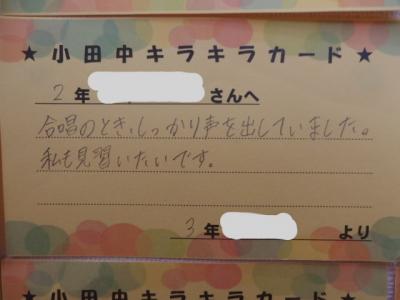 ★小田中キラキラカード★
2年 さんへ
合唱のとき、しっかり声を出していました。
私も見習いたいです。
3年 より
★小田中キラキラカード★